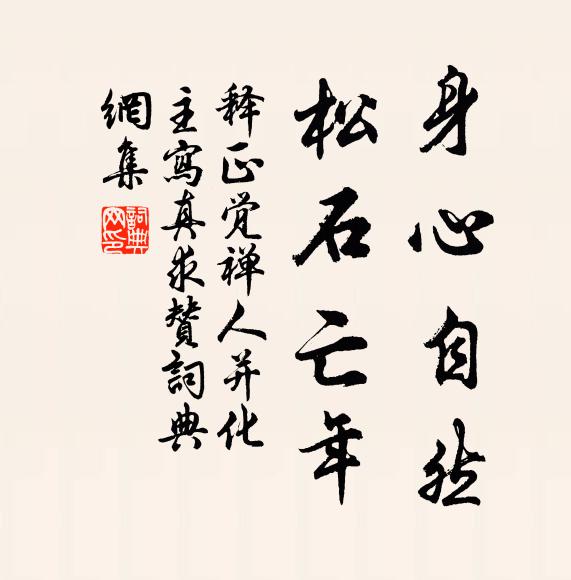 身心自然
松石亡年
释正觉禅人并化
主寫真求贊詞典
網集
詞典网印